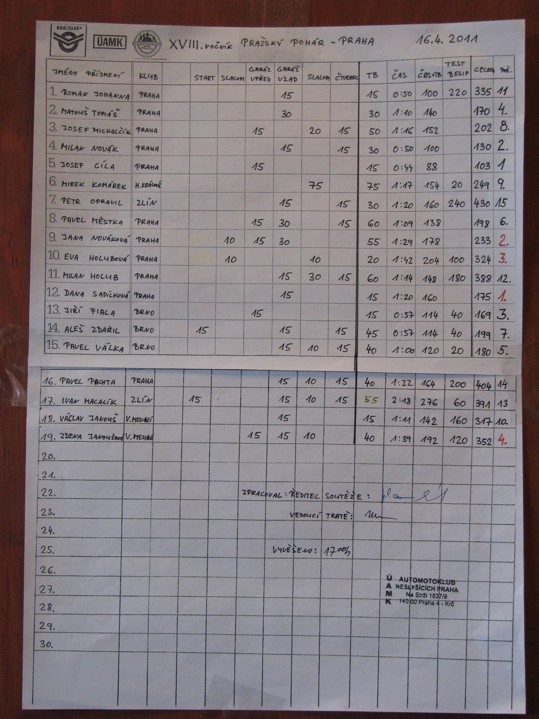 BESIP ÚAMK XVIII. ROČNÍK PRAŽSKÝ POHÁR - PRAHA 16.4. 2011
JMÉNO PŘÍJMENÍ KLUB START SLALOM GARÁŽ VPŘED GARÁŽ VZAD SLALOM ČTVEREC TB ČAS ČAS+TB TEST BESIP CELKEM
1. ROMAN JOHANNA PRAHA 15 15 0:50 100 220 335 11
2. MATOUŠ TOMÁŠ PRAHA 30 30 1:10 140 170 4.
3. JOSEF MICHALČÍK PRAHA 15 20 15 50 1:16 152 202 8.
4. MILAN NOVÁK PRAHA 15 15 30 0:50 100 130 2.
5. JOSEF CÍLA PRAHA 15 15 0:44 88 103 1
6. MIREK KOMÁREK 75 75 1:17 154 20 249 9.
7. PETR OPRAVIL ZLÍN 15 15 30 1:20 160 240 430 15
8. PAVEL MĚSTKA PRAHA 15 30 15 60 1:09 138 198 6.
9. JANA NOVÁKOVÁ PRAHA 10 15 30 55 1:29 178 233 2.
10. EVA HOLUBOVÁ PRAHA 10 10 20 1:42 204 100 324 3.
11. MILAN HOLUB PRAHA 15 30 15 60 1:14 148 180 388 12.
12. DANA SADÍLKOVÁ PRAHA 15 15 1:20 160 175 1.
13. JIŘÍ FIALA BRNO 15 15 0:57 114 40 169 3.
14. ALEŠ ZDAŘIL BRNO 15 15 15 45 0:57 114 40 199 7.
15. PAVEL VÁLKA BRNO 15 10 15 40 1:00 120 20 180 5.
16. PAVEL PACHTA PRAHA 15 10 15 40 1:22 164 200 404 14
17. IVAN MACALÍK ZLÍN 15 15 10 15 55 2:18 276 60 391 13
18. VÁCLAV JANOUŠ 15 15 1:11 142 160 317 10.
19. ZDENA JANOUŠOVÁ 15 15 10 40 1:39 192 120 352 4.
20.
21.
22. ZPRACOVAL: ŘEDITEL SOUTĚŽE:
23. VEDOUCÍ TRATĚ:
24.
25. VYVĚŠENO: 17:00h
26.
27. ÚAMK AUTOMOTOKLUB
NESLYŠÍCÍCH PRAHA
28. Na Strži 1837/9
140 00 Praha 4 - Krč
29.
30.